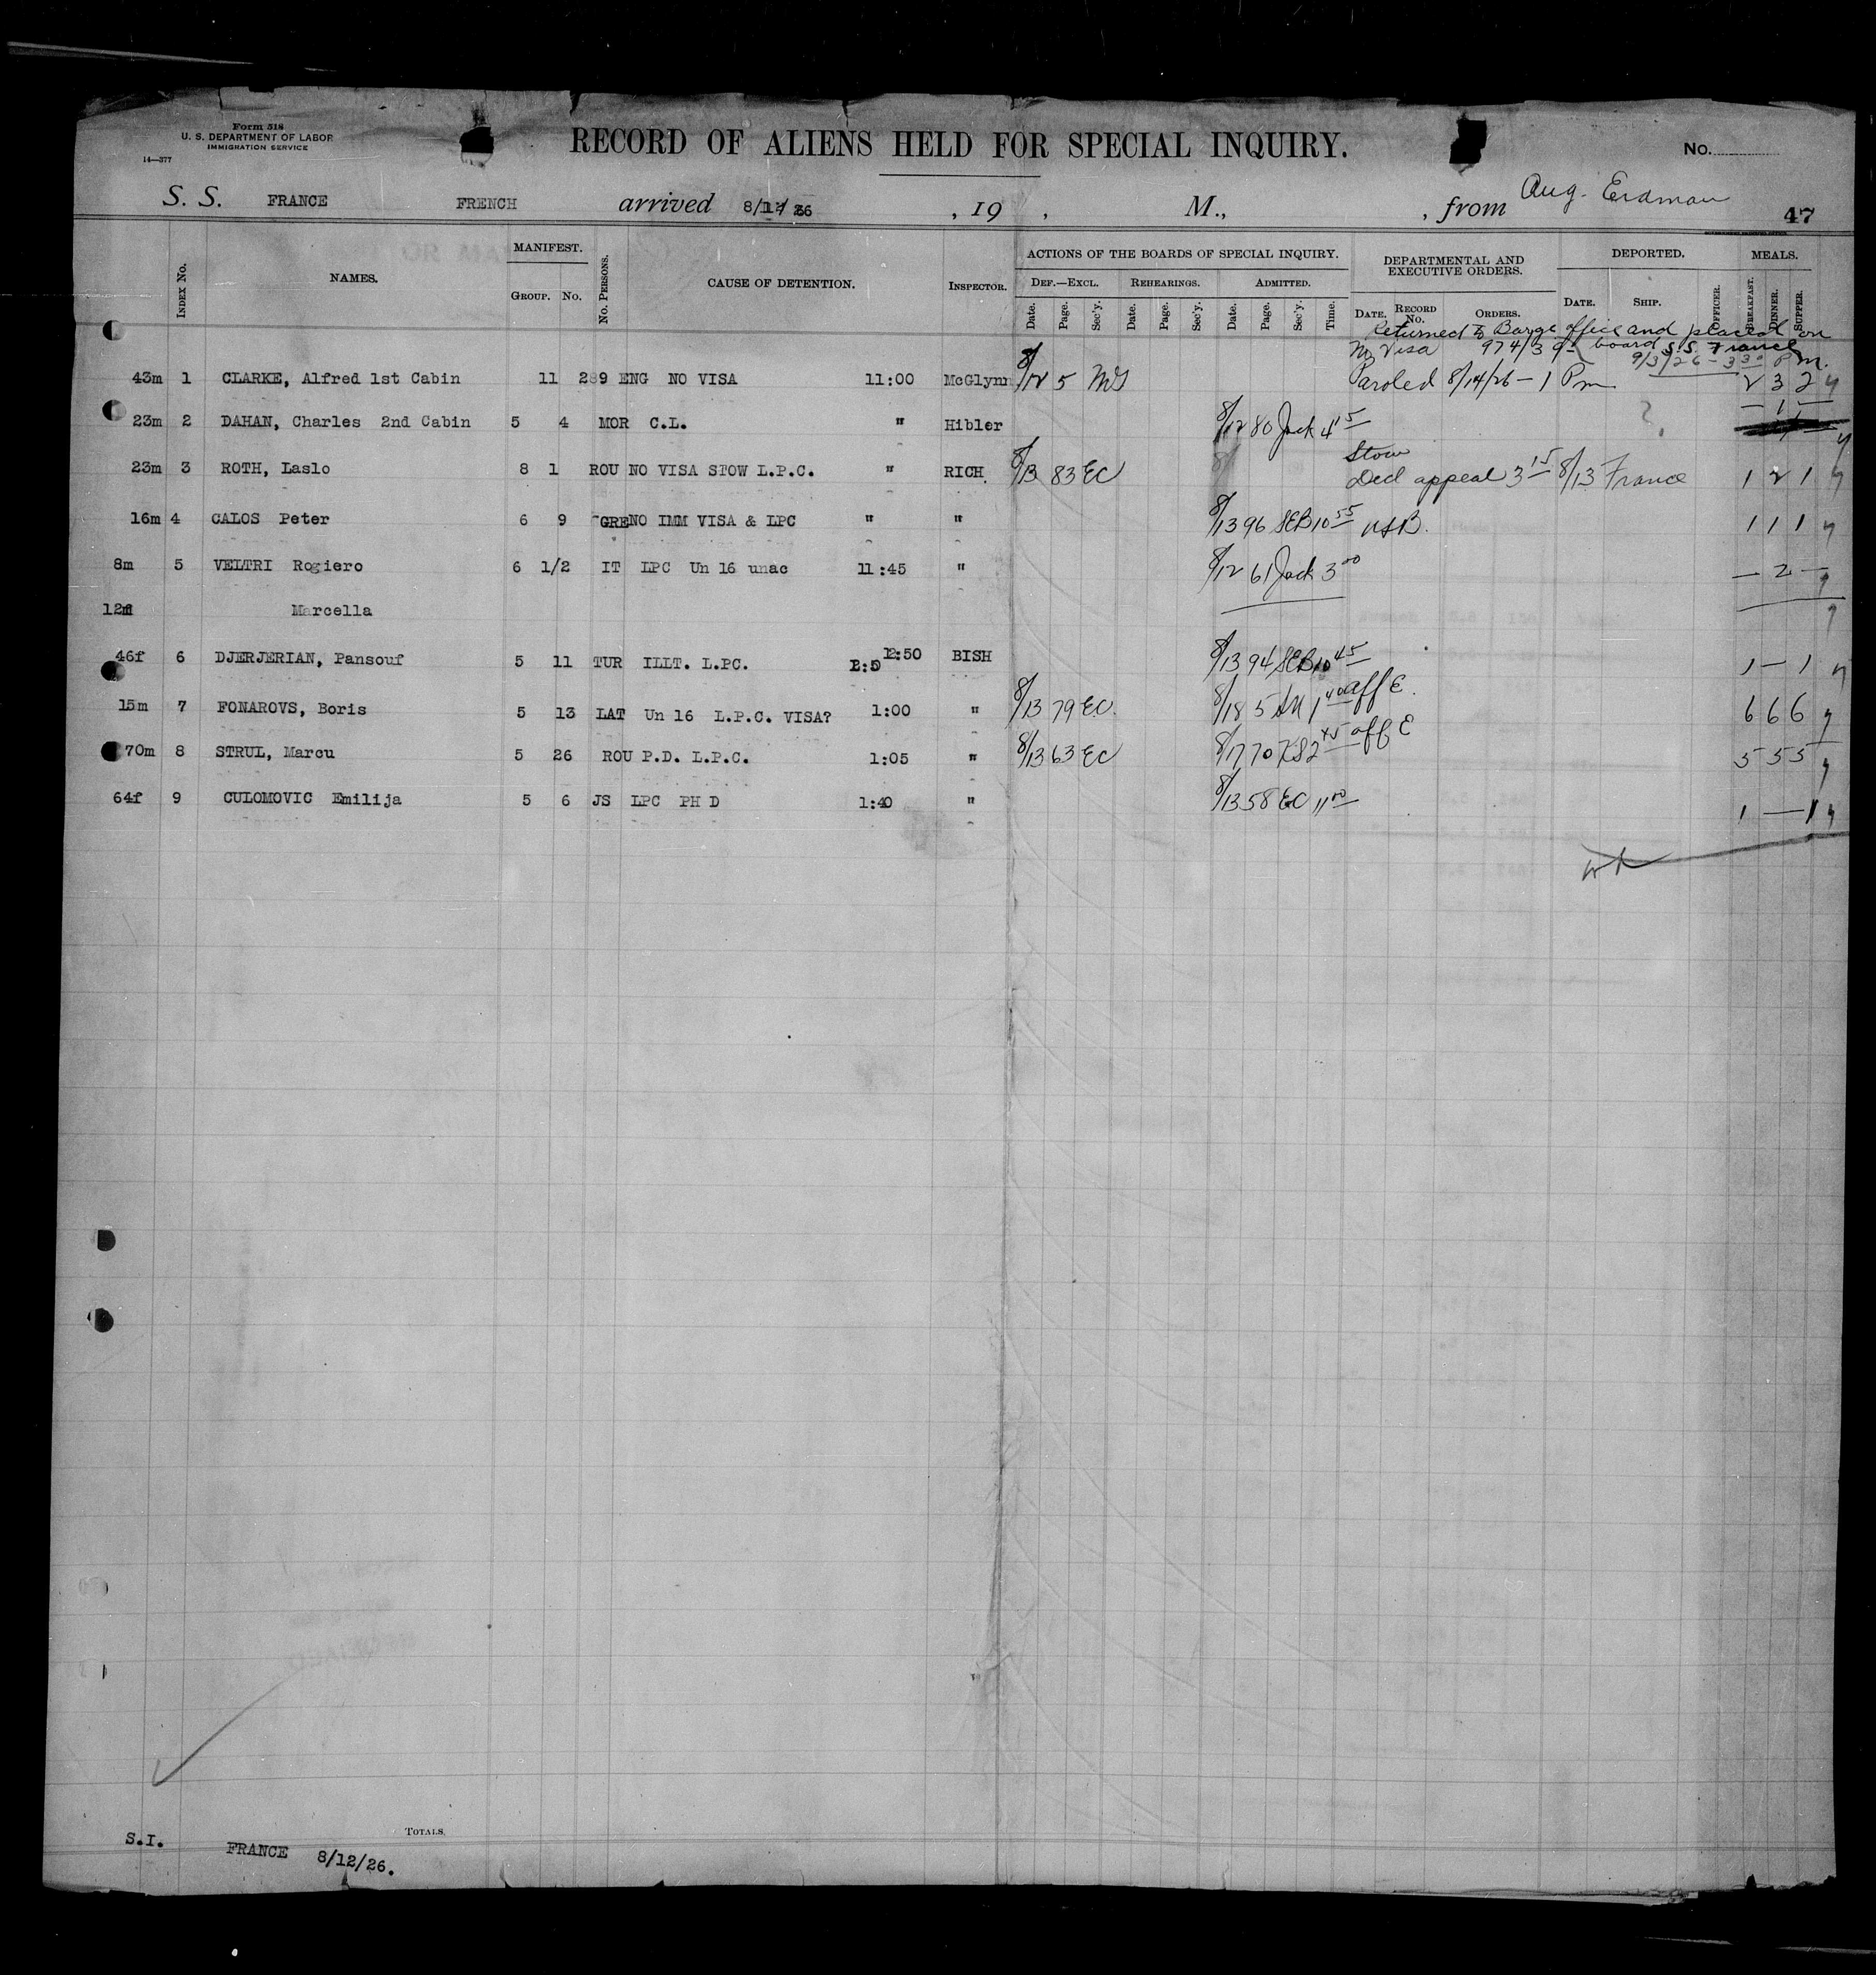 Form 518
U. S. DEPARTMENT OF LABOR
IMMIGRATION SERVICE
14—377
RECORD OF ALIENS HELD FOR SPECIAL INQUIRY.
No.
S. S. FRANCE FRENCH arrived 8/12/26 , 19 , M., , from Aug. Erdman
47
INDEX No. NAMES. MANIFEST. GROUP. No. No. PERSONS. CAUSE OF DETENTION. INSPECTOR. ACTIONS OF THE BOARDS OF SPECIAL INQUIRY. DEPARTMENTAL AND EXECUTIVE ORDERS. DEPORTED. MEALS.
DEF.—EXCL. REHEARINGS. ADMITTED.
Date. Page. Sec'y. Date. Page. Sec'y. Date. Page. Sec'y. Time. DATE. RECORD No. ORDERS. DATE. SHIP. OFFICER. BREAKFAST. DINNER. SUPPER.
Returned to Barge office and placed on
Visa 974/39 board S.S. France
9/3/26 - 3 30 P.M.
43m 1 CLARKE, Alfred 1st Cabin 11 289 ENG NO VISA 11:00 McGlynn 8/12 5 Paroled 8/14/26 - 1 Pm 2 3 2
23m 2 DAHAN, Charles 2nd Cabin 5 4 MOR C.L. " Hibler 8/12 80 Jack 4 15 — 1 —
Stow
23m 3 ROTH, Laslo 8 1 ROU NO VISA STOW L.P.C. " RICH. 8/13 83 EC Decl appeal 3 15 8/13 France 1 2 1
16m 4 CALOS Peter 6 9 GRE NO IMM VISA & LPC " " 8/13 96 SEB 10 55 1 1 1
8m 5 VELTRI Rogiero 6 1/2 IT LPC Un 16 unac 11:45 " 8/12 61 Jack 3 00 — 2 —
12f Marcella
46f 6 DJERJERIAN, Pansouf 5 11 TUR ILLT. L.PC. 12:50 BISH 8/13 94 SEB 10 45 1 — 1
15m 7 FONAROVS, Boris 5 13 LAT Un 16 L.P.C. VISA? 1:00 " 8/13 79 EC. 8/18 5 1 40 aff E. 6 6 6
70m 8 STRUL, Marcu 5 26 ROU P.D. L.P.C. 1:05 " 8/13 63 EC 8/17 70 KS 2 45 aff E 5 5 5
64f 9 CULOMOVIC Emilija 5 6 JS LPC PH D 1:40 " 8/13 58 EC 11 00 1 — 1
TOTALS.
S.I. FRANCE 8/12/26.